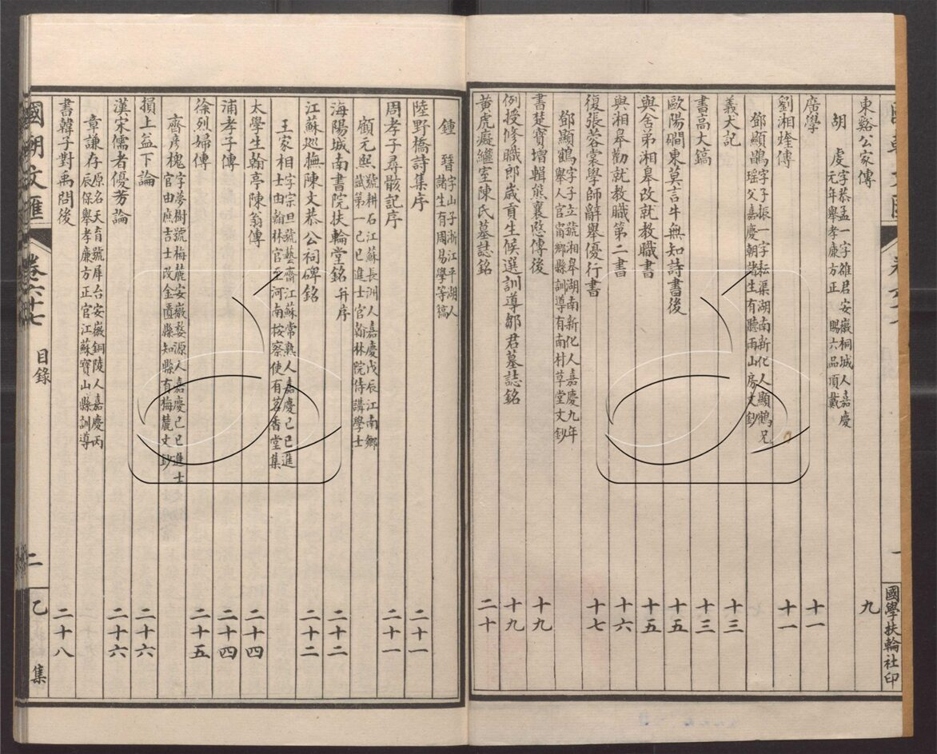 東谿公家傳 九
胡虔 字恭孟一字雒君安徽桐城人嘉慶
元年舉孝廉方正 賜六品頂戴
廣學 十一
劉湘煃傳 十一
鄧顯鵑 字子振一字耘渠湖南新化人顯鶴兄
瑶父嘉慶朝諸生有聽雨山房文鈔
義犬記 十三
書高大鎬 十三
歐陽磵東莫言牛無知詩書後 十五
與舍弟湘皋改就教職書 十五
與湘皋勸就教職第二書 十六
復張蓉裳學師辭舉優行書 十七
鄧顯鶴 字子立號湘皋湖南新化人嘉慶九年
舉人官甯鄉縣訓導有南村草堂文鈔
書楚寶增輯蔡襄愍傳後 十九
例授修職郎歲貢生候選訓導鄒君墓誌銘 十九
黃虎癡繼室陳氏墓誌銘 二十
國學扶輪社印
鍾䇾 字山子浙江平湖人
諸生有周易學等搞
陸野橋詩集序 二十一
周孝子尋骸記序 二十一
顧元熙 號耕石江蘇長洲人嘉慶戊辰江南鄉
試第一己巳進士官翰林院侍講學士
海陽城南書院扶輪堂銘并序 二十二
江蘇巡撫陳文恭公祠碑銘 二十二
王家相 字宗旦號藝齋江蘇常熟人嘉慶己巳進
士由翰林官至河南按察使有茗香堂集
太學生翰亭陳翁傳 二十四
浦孝子傳 二十四
徐烈婦傳 二十五
齊彥槐 字夢樹號梅麓安徽婺源人嘉慶己巳進士
官由庶吉士改金匱縣知縣有梅麓文鈔
損上益下論 二十六
漢宋儒者優劣論 二十六
章謙存 原名天育號犀台安徽銅陵人嘉慶丙
辰保舉孝廉方正官江蘇寶山縣訓導
書韓子對禹問後 二十八
國朝文匯 卷六十七 目錄 二 乙集